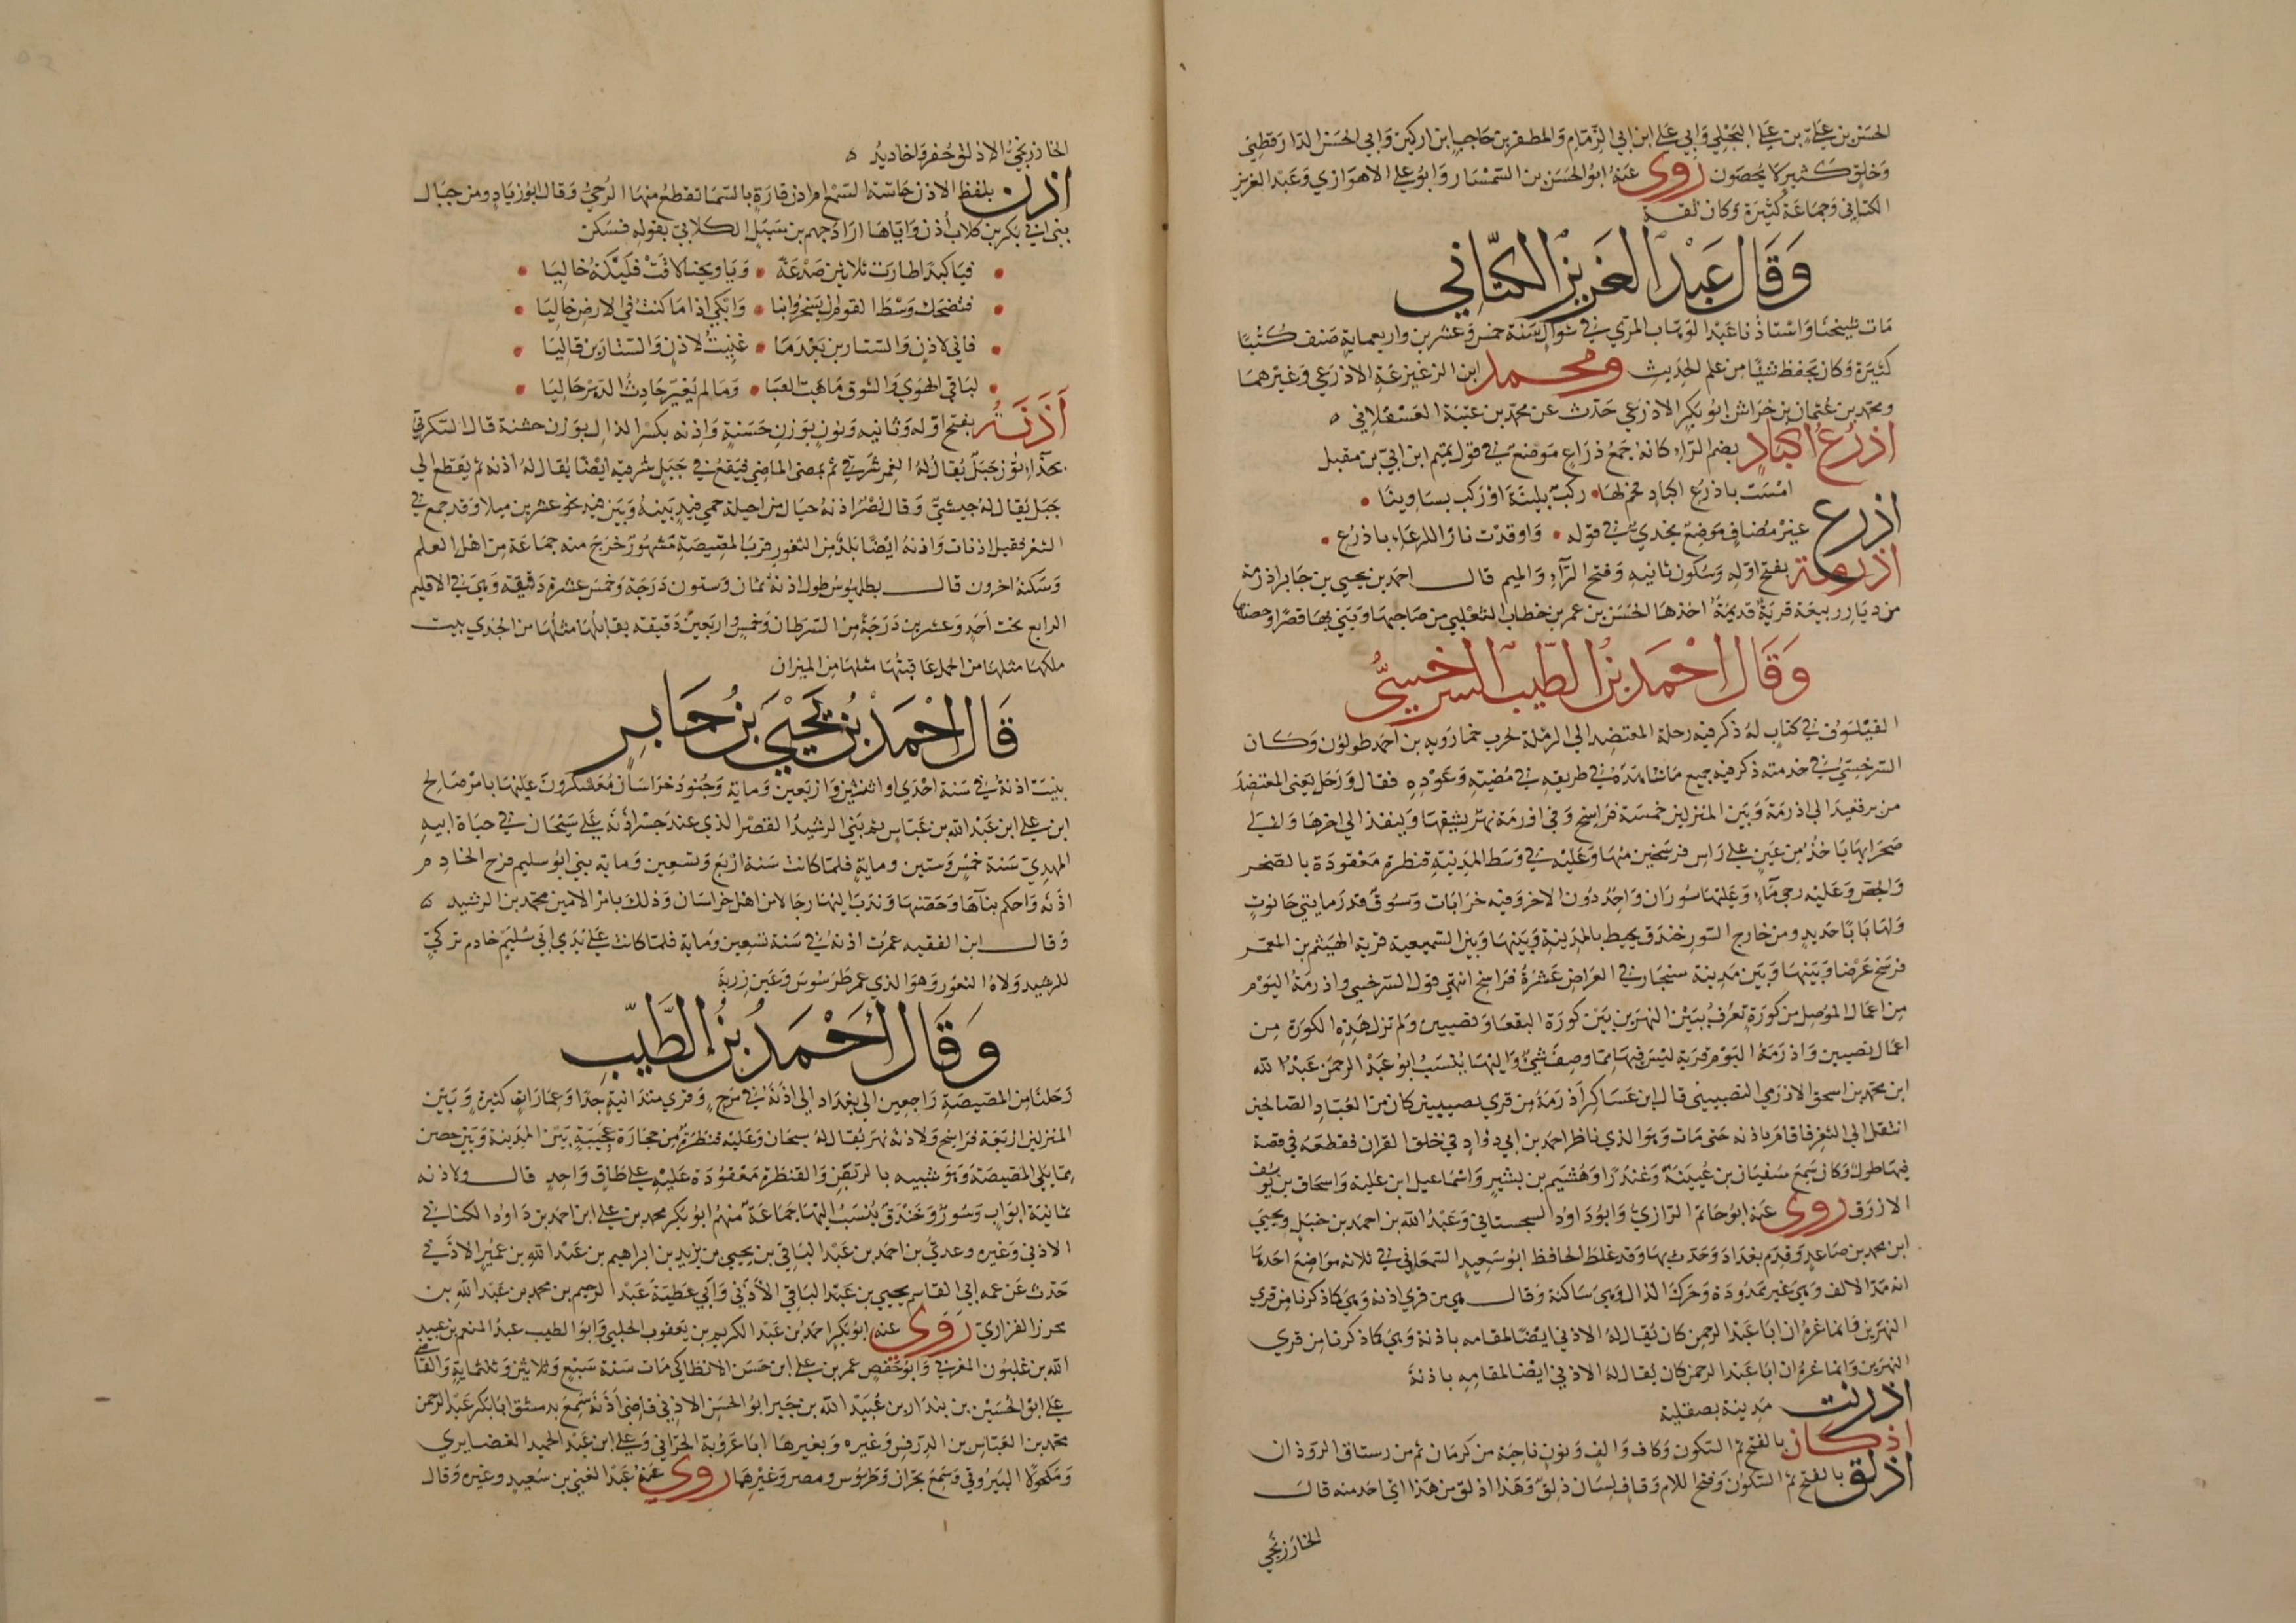 الحسن بن علي بن علي البجلي وابي علي ابن ابي الزمام والمظفر بن حاجب ابن اركين وابي الحسن الدارقطني
وخلق كثير لا يحصون روى عنه ابو الحسن بن السمسار وابو علي الاهوازي وعبد العزيز
الكتاني وجماعة كثيرة وكان ثقة
وقال عبد العزيز الكتاني
مات شيخنا واستاذنا عبد الوهاب المري في شوال سنة خمس وعشرين واربعماية صنف كتبا
كثيرة وكان يحفظ شيئا من علم الحديث ومحمد ابن الزعيزعة الاذرعي وغيرهما
ومحمد بن عثمان بن خراش ابو بكر الاذرعي حدث عن محمد بن عقبة العسقلاني
اذرع اكباد بضم الراء كانه جمع ذراع موضع في قول تميم ابن ابي بن مقبل
امست باذرع اكباد فحم لها ركب بلينة او ركب بساوينا
اذرع غير مضاف موضع نجدي في قوله واوقدت نار اللرعاء باذرع
اذرمة بفتح اوله وسكون ثانيه وفتح الراء والميم قال احمد بن يحيى بن جابر اذرمة
من ديار ربيعة قرية قديمة اخذها الحسن بن عمر بن خطاب التغلبي من صاحبها وبنى بها قصرا وحصنها
وقال احمد بن الطيب السرخسي
الفيلسوف في كتاب له ذكر فيه رحلة المعتضد الى الرملة لحرب خمارويه بن احمد طولون وكان
السرخسي في خدمته ذكر فيه جميع ما شاهده في طريقه في مضيه وعوده فقال ورحل يعني المعتضد
من برقعيد الى اذرمة وبين المنزلين خمسة فراسخ وفي اذرمة نهر يشقها وينفذ الى اخرها والى
صحرايها ياخذ من عين على راس فرسخين منها وعليه في وسط المدينة قنطرة معقودة بالصخر
والجص وعليه رحى ماء وعليها سوران واحد دون الاخر وفيه خرابات وسوق قدر مايتي حانوت
ولها بابا حديد ومن خارج السور خندق يحيط بالمدينة وبينها وبين السميعية قرية الهيثم بن المعمر
فرسخ عرضا وبينها وبين مدينة سنجار في العراض عشرة فراسخ انتهى قول السرخسي واذرمة اليوم
من اعمال الموصل من كورة تعرف ببين النهرين بين كورة البقعا ونصيبين ولم تزل هذه الكورة من
اعمال نصيبين واذرمة اليوم قرية ليس فيها مما وصف شيء واليها ينسب ابو عبد الرحمن عبد الله
ابن محمد بن اسحق الاذرمي النصيبيني قال ابن عساكر اذرمة من قرى نصيبين كان من العباد الصالحين
انتقل الى الثغر فاقام باذنه حتى مات وهو الذي ناظر احمد بن ابي دواد في خلق القران فقطعه في قصة
فيها طول وكان سمع سفيان بن عيينة وغندرا وهشيم بن بشير واسماعيل ابن علية واسحاق بن يوسف
الازرق روى عنه ابو حاتم الرازي وابو داود السجستاني وعبد الله بن احمد بن حنبل ويحيى
ابن محمد بن صاعد وقدم بغداد وحدث بها وقد غلط الحافظ ابو سعيد السمعاني في ثلاثه مواضع احدها
انه مد الالف وهي غير ممدودة وحرك الذال وهي ساكنة وقال هي من قرى اذنه وهي كما ذكرنا من قرى
النهرين فانما غره ان ابا عبد الرحمن كان يقال له الاذني ايضا لمقامه باذنة وهي كما ذكرنا من قرى
النهرين وانما غره ان ابا عبد الرحمن كان يقال له الاذني ايضا لمقامه باذنة
اذرنت مدينة بصقلية
اذكان بالفتح ثم السكون وكاف والف ونون ناحية من كرمان ثم من رستاق الروذان
اذلق بالفتح ثم السكون وفتح اللام وقاف لسان ذلق وهذا اذلق من هذا اي احد منه قال
الخارزنجي
الخارزنجي الاذلق حفر واخاديد
اذن بلفظ الاذن حاسة السمع ام اذن قارة بالسما تقطع منها الرحي وقال ابو زياد ومن جبال
بني ابي بكر بن كلاب اذن واياها اراد جهم بن سبل الكلابي بقوله فسكن
فيا كبدا طارت ثلاثين صدعة ويا ويحنا لاقت فليكة خاليا
فتضحك وسط القوم ان يسخروا بنا وابكي اذا ما كنت في الارض خاليا
فاني لاذن والستارين بعدما غنيت لاذن والستارين قاليا
لباقي الهوى والشوق ما هبت الصبا وما لم يغير حادث الدهر حاليا
اذنة بفتح اوله وثانيه ونون بوزن حسنة واذنه بكسر الذال بوزن خشنة قال السكري
بحذاء توز جبل يقال له الغمر شرقي ثم يمضى الماضي فيقع في جبل شرقيه ايضا يقال له اذنه ثم يقطع الى
جبل يقال له حبشي وقال نصر اذنه خيال من اخيلة حمى فيد بينه وبين فيد نحو عشرين ميلا وقد جمع في
الشعر فقيل اذنات واذنه ايضا بلد من الثغور قرب المصيصة مشهور خرج منه جماعة من اهل العلم
وسكنه اخرون قال بطلميوس طول اذنة ثمان وستون درجة وخمس عشرة دقيقة وهي في الاقليم
الرابع تحت احد وعشرين درجة من السرطان وخمس واربعين دقيقة يقابلها مثلها من الجدي بيت
ملكها مثلها من الحمل عاقبتها مثلها من الميزان
قال احمد بن يحيى بن جابر
بنيت اذنة في سنة احدى او اثنتين واربعين وماية وجنود خراسان معسكرون عليها بامر صالح
ابن علي ابن عبد الله بن عباس ثم بنى الرشيد القصر الذي عند جسر اذنة على سيحان في حياة ابيه
المهدي سنة خمس وستين وماية فلما كانت سنة اربع وتسعين وماية بنى ابو سليم فرج الخادم
اذنه واحكم بناها وحصنها وندب اليها رجالا من اهل خراسان وذلك بامر الامين محمد بن الرشيد
وقال ابن الفقيه عمرت اذنة في سنة تسعين وماية فلما كانت على يدي ابي سليم خادم تركي
للرشيد ولاه الثغور وهو الذي عمر طرسوس وعين زربة
وقال احمد بن الطيب
رحلنا من المصيصة راجعين الى بغداد الى اذنة في مرج وقرى متدانية جدا وعمارات كثيرة وبين
المنزلين اربعة فراسخ ولاذنه نهر يقال له سيحان وعليه قنطرة من حجارة عجيبة بين المدينة وبين حصن
مما يلي المصيصة وهو شبيه بالربض والقنطرة معقودة عليه على طاق واحد قال ولاذنه
ثمانية ابواب وسور وخندق ينسب اليها جماعة منهم ابو بكر محمد بن علي ابن احمد بن داود الكناني
الاذني وغيره وعدي بن احمد بن عبد الباقي بن يحيى بن يزيد بن ابراهيم بن عبد الله بن عمير الاذني
حدث عن عمه ابي القاسم يحيى بن عبد الباقي الاذني وابي عطية عبد الرحيم بن محمد بن عبد الله بن
محرز الفزاري روى عنه ابو بكر احمد بن عبد الكريم بن يعقوب الحلبي وابو الطيب عبد المنعم بن عبيد
الله بن غلبون المغربي وابو حفص عمر بن علي ابن حسن الانطاكي مات سنة سبع وثلاثين وثلثماية والقاضي
علي ابو الحسين بن بندار بن عبيد الله بن جبير ابو الحسن الاذني قاضي اذنة سمع بدمشق ابا بكر عبد الرحمن
محمد بن العباس بن الدرفس وغيره وبغيرها ابا عروبة الحراني وعلي ابن عبد الحميد الغضايري
ومكحولا البيروتي وسمع بحران وطرسوس ومصر وغيرها روى عنه عبد الغني بن سعيد وغيره وقال